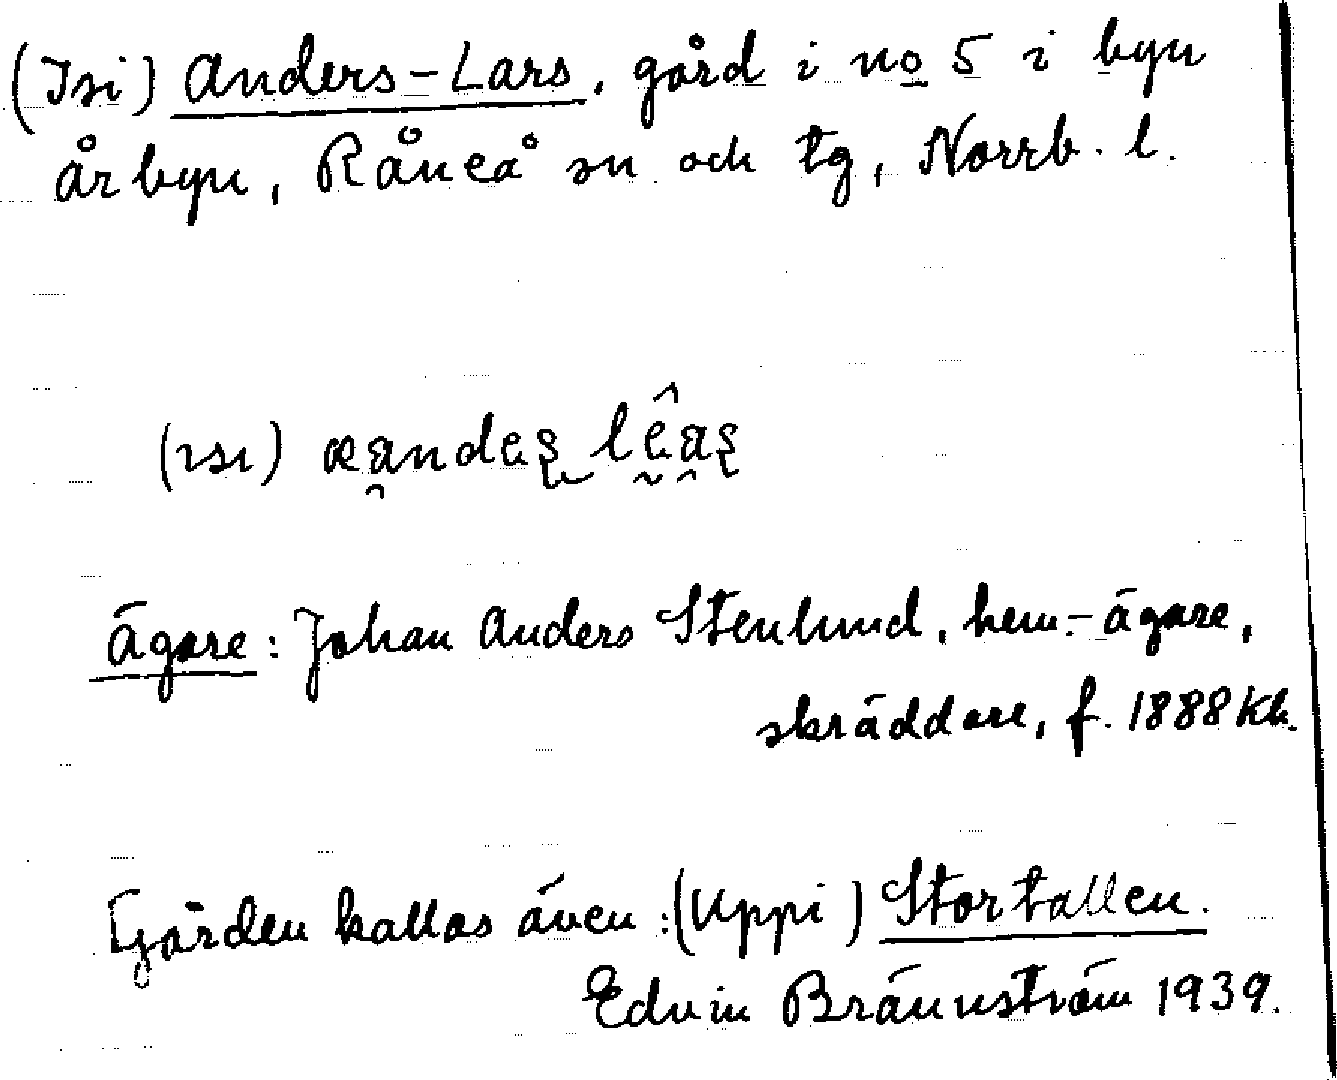 (Isi) Anders-Lars, gård i no 5 i byn
Årbyn, Råneå sn och tg, Norrb. l.
(ısı) æandes̨ lêas̨
Ägare: Johan Anders Stenlund, hem.-ägare,
skräddare, f. 1888 Kh.
Gården kallas även: (Uppi) Stortallen.
Edvin Brännström 1939.